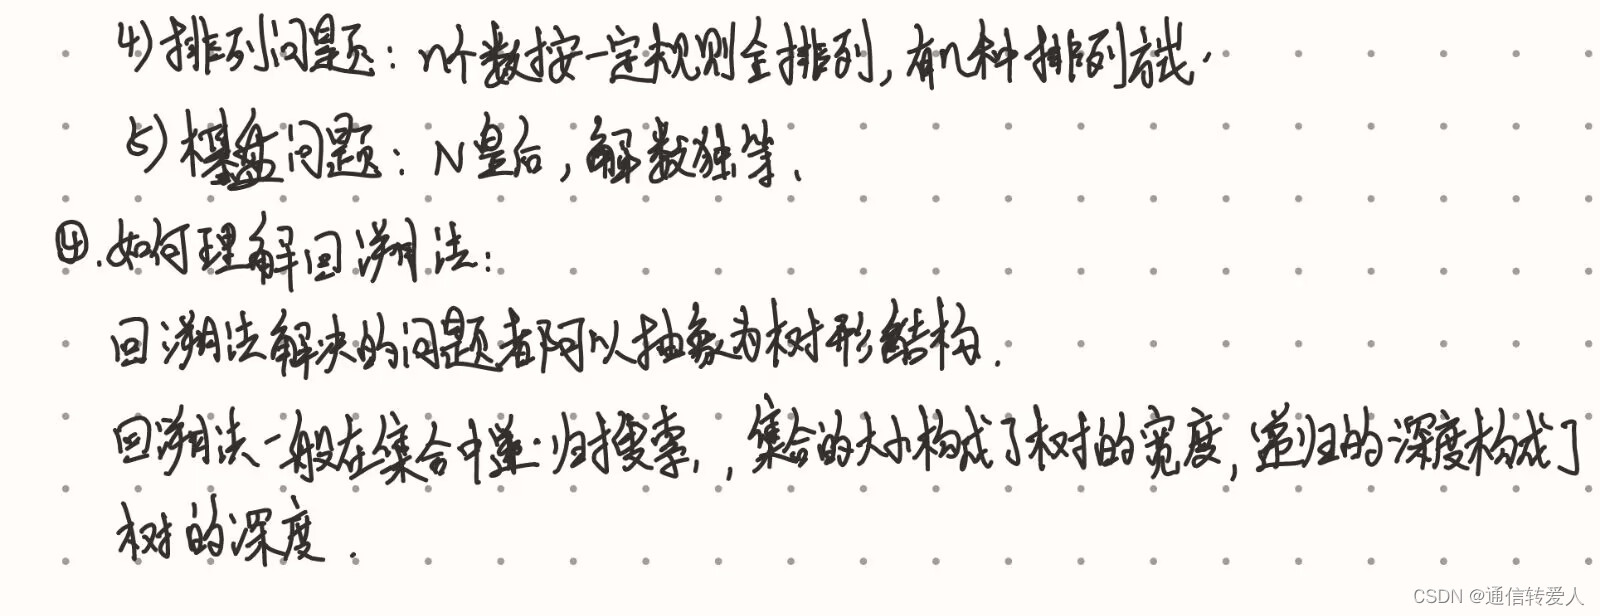 4)排列问题：n个数按一定规则全排列,有几种排列方式.
5)棋盘问题：N皇后,解数独等.
④.如何理解回溯法：
回溯法解决的问题都可以抽象为树形结构.
回溯法一般在集合中递归搜索,,集合的大小构成了树的宽度,递归的深度构成了
树的深度.
CSDN @通信转爱人